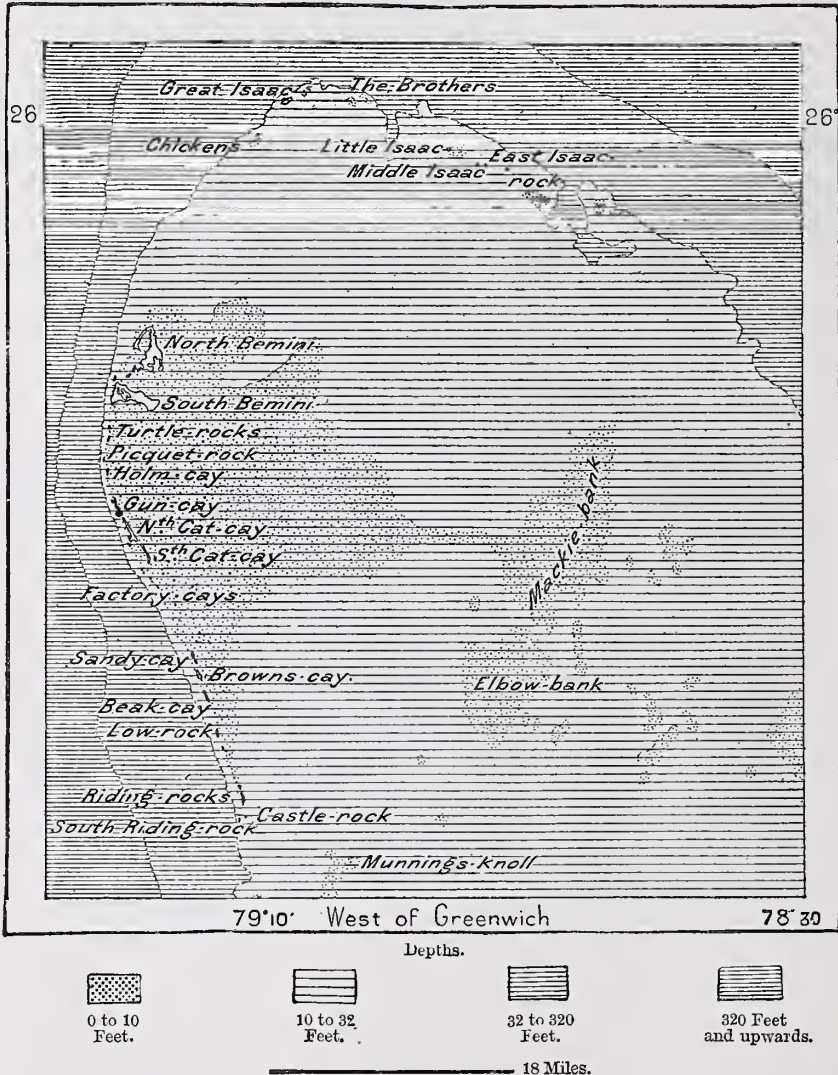 Great Isaac The Brothers
26 26°
Chickens Little Isaac East Isaac
Middle Isaac rock
North Bemini
South Bemini
Turtle-rocks
Picquet-rock
Holm-cay
Gun-cay
Nth Cat-cay
Sth Cat-cay
Mackie-bank
Factory-cays
Sandy-cay
Browns-cay.
Elbow-bank
Beak-cay
Low-rock
Riding-rocks
Castle-rock
South Riding-rock
Munnings-knoll
79°10' West of Greenwich 78°30
Depths.
0 to 10 Feet.
10 to 32 Feet.
32 to 320 Feet.
320 Feet and upwards.
18 Miles.